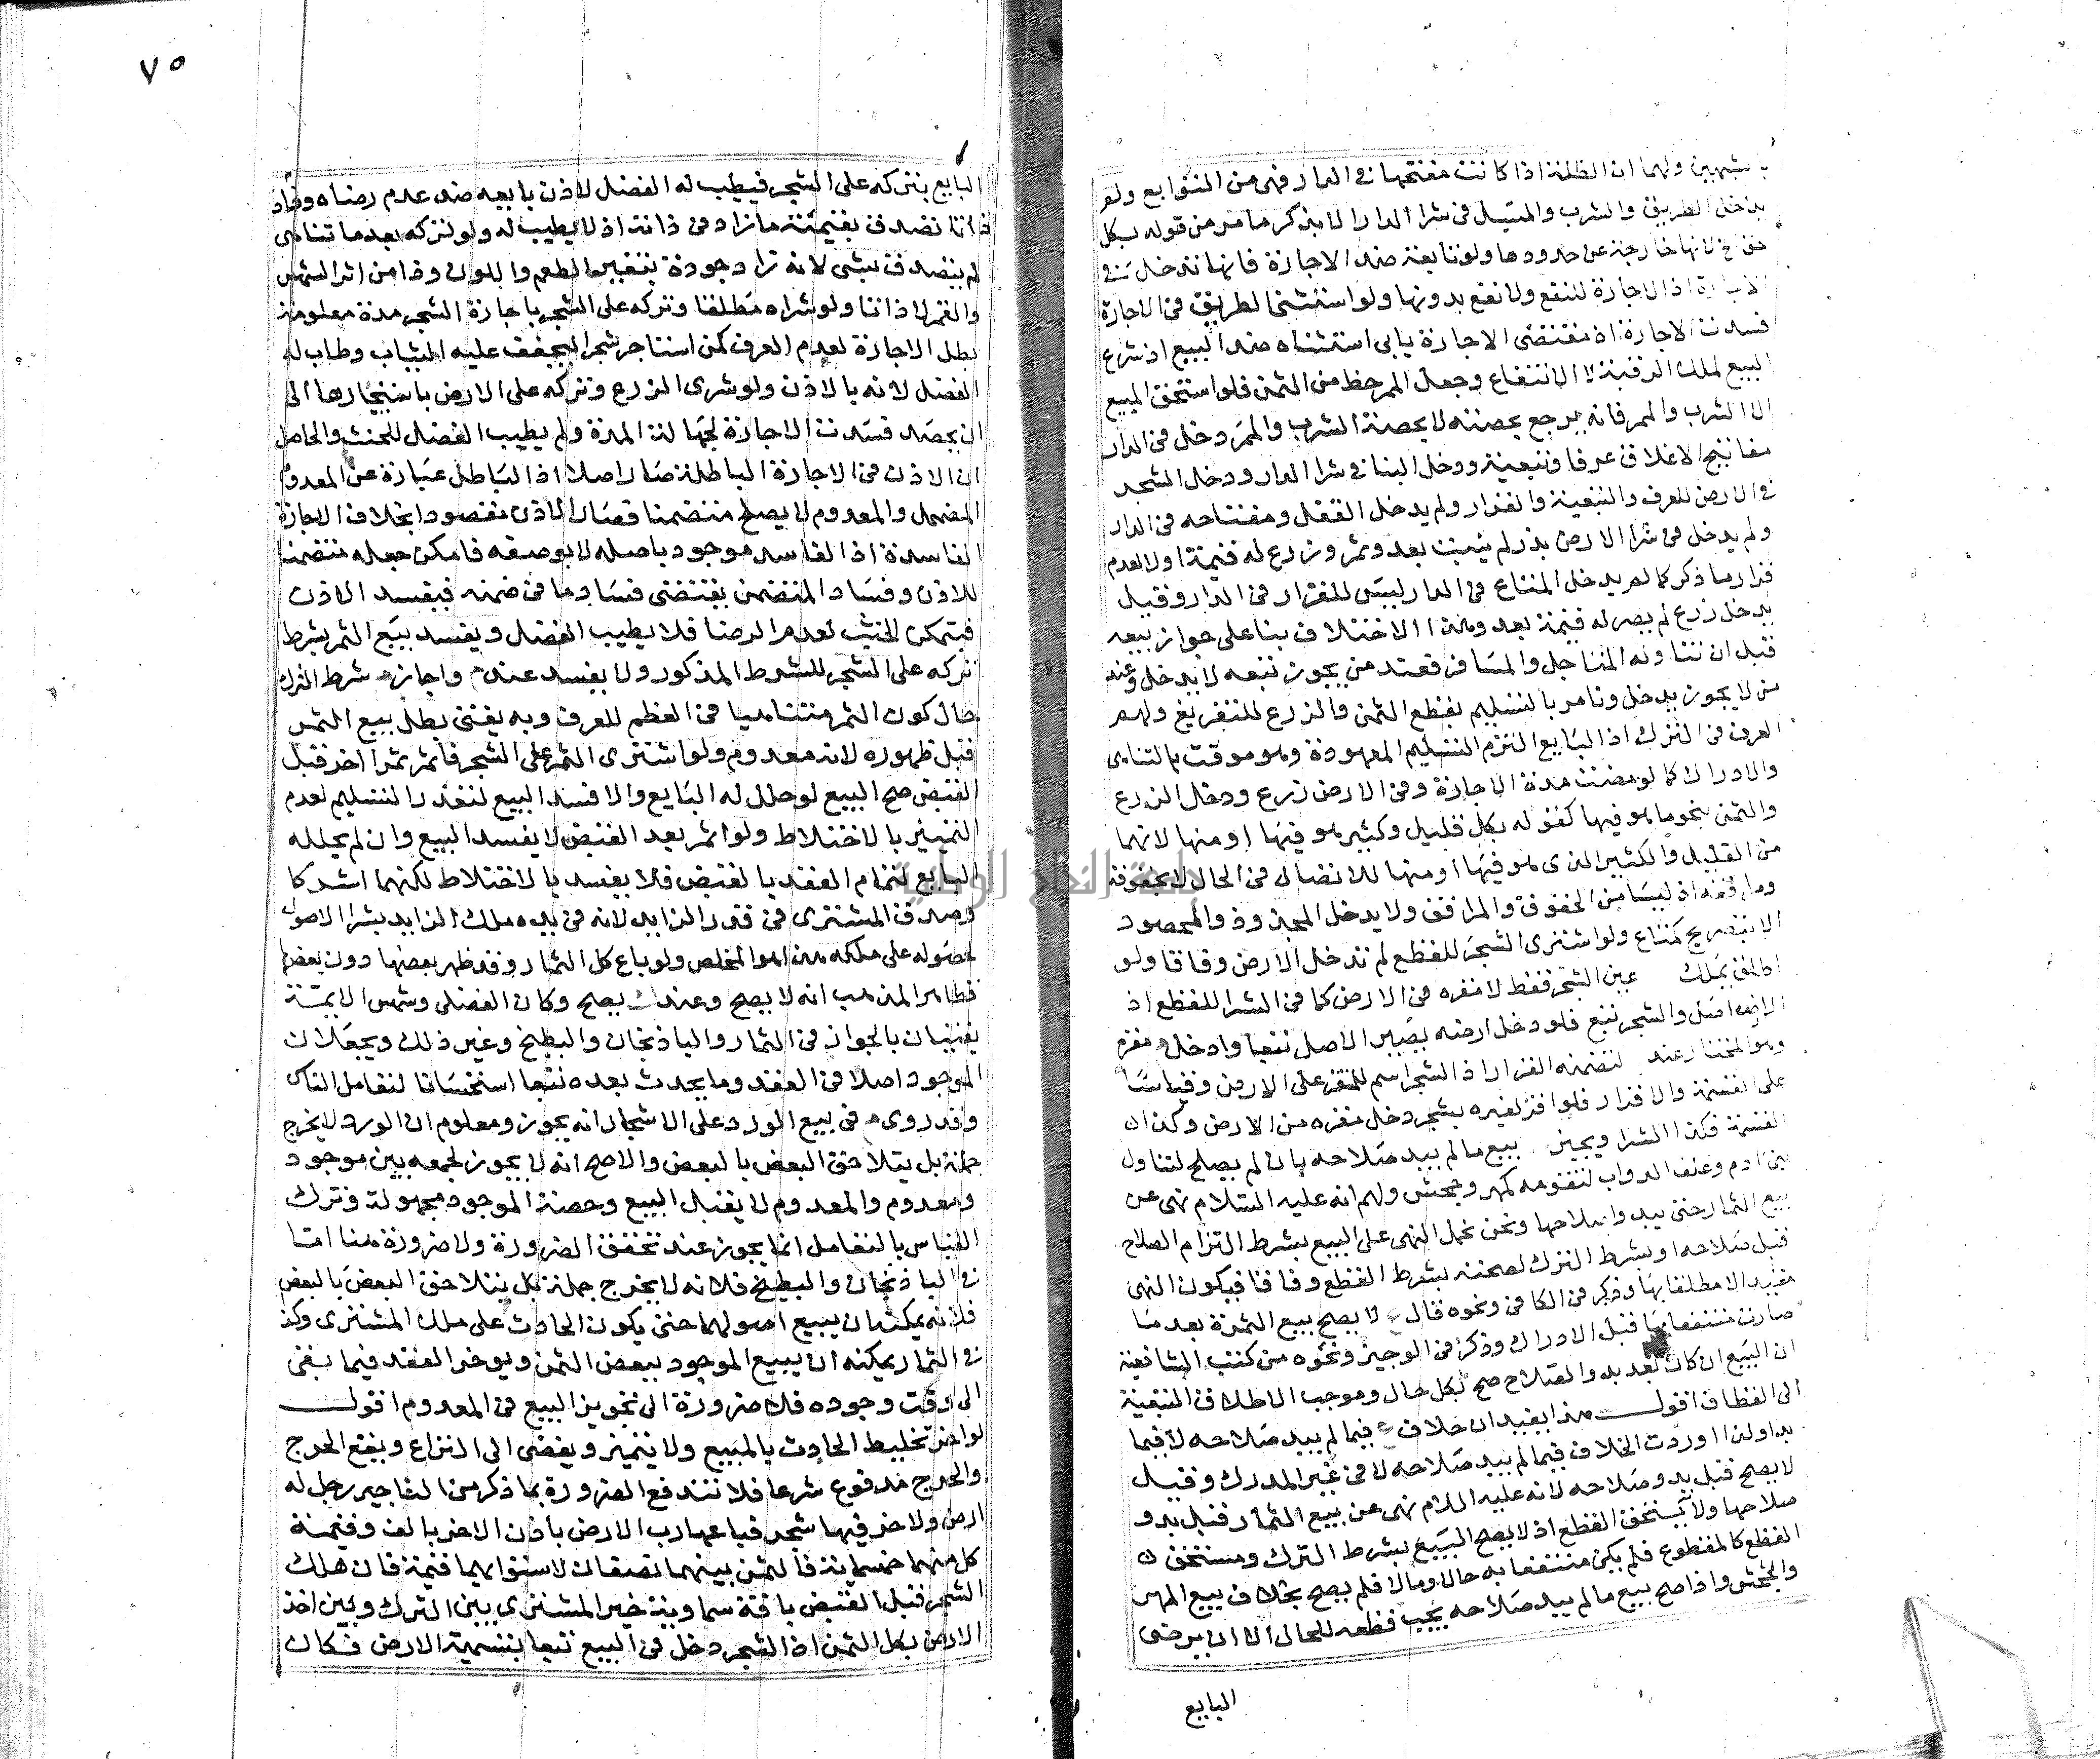 باشتهيين ولهما ان الظلة اذا كانت مفتحها في الدار فهي من التوابع ولو
يدخل الطريق والشرب والمسيل في شرا الدار الا بذكر ما مر من قوله بكل
حق خ لانها خارجة عن حدودها ولو تابعة ضد الاجارة فانها تدخل في
الاجارة اذ الاجارة لتنفع ولا نفع بدونها ولو استثنى الطريق في الاجارة
فسدت الاجارة اذ مقتضى الاجارة يابى استثناه ضد البيع اذ شرع
البيع لملك الرقبة لا الانتفاع وجعل الممر حظ من الثمن فلو استحق المبيع
الا الشرب والممر فانه يرجع بحصته لا بحصة الشرب والممر ودخل في الدار
مفاتيح الاغلاق عرفا وتبعية ودخل البنا في شرا الدار ودخل الشجر
في الارض للعرف والتبعية والقرار ولم يدخل القفل ومفتاحه في الدار
ولم يدخل في شرا الارض بذر لم ينبت بعد وثمر وزرع له قيمة اولا لعدم
قرار ما ذكر كما لم يدخل المتاع في الدار ليس للقرار في الدار وقيل
يدخل زرع لم يصر له قيمة بعد وهذا الاختلاف بنا على جواز بيعه
قبل ان تناوله المناجل والمشافر فعند من يجوز تبعه لا يدخل وعند
من لا يجوز يدخل ونامر بالتسليم بقطع الثمن والزرع للتفريغ ولهم
العرف في الترك اذ البايع التزم التسليم المعهودة وهو موقت بالتناهي
والادراك كما لو مضت مدة الاجارة وفي الارض زرع ودخل الزرع
والثمن بنحو ما هو فيها كقوله بكل قليل وكثير هو فيها او منها لانهما
من القليل والكثير الذي هو فيها او منها للاتصال في الحال لا بحقوقه
ومرافقه اذ ليسا من الحقوق والمرافق ولا يدخل المجذوذ والمحصود
الا بتصريح كمتاع ولو اشترى الشجر للقطع لم تدخل الارض وفاقا ولو
اطلق يملك عين الشجر فقط لا مقره في الارض كما في الشرا للقطع اذ
الارض اصل والشجر تبع فلو دخل ارضه يصير الاصل تبعا وادخل مقره
وهو المختار عند لتضمنه القرار اذ الشجر اسم للمقر على الارض وقياسا
على القسمة والاقرار فلو اقر لغيره بشجر دخل مقره من الارض وكذا
القسمة فكذا الشرا ويجيز بيع ما لم يبد صلاحه بان لم يصلح لتناول
بني ادم وعلف الدواب لتقومه كمهر وجحش ولهم انه عليه السلام نهى عن
بيع الثمار حتى يبدوا صلاحها ونحن نحمل النهي على البيع بشرط التزام الصلاح
قبل صلاحه او بشرط الترك لصحته بشرط القطع وفاقا فيكون النهي
مقيدا لا مطلقا بها وذكر في الكافي ونحوه قال لا يصح بيع الثمرة بعد ما
صارت منتفعا بها قبل الادراك وذكر في الوجيز ونحوه من كتب الشافعية
ان البيع ان كان بعد بدو الصلاح صح بكل حال وموجب الاطلاق التبقية
الى القطاف اقول هذا يفيد ان خلاف فيما لم يبد صلاحه لا فيما
بدا ولذا اوردت الخلاف فيما لم يبد صلاحه لا في غير المدرك وقيل
لا يصح قبل بدو صلاحه لانه عليه السلام نهى عن بيع الثمار قبل بدو
صلاحها ولا يستحق القطع اذ لا يصح البيع بشرط الترك ومستحق
القطع كالمقطوع فلم يكن منتفعا به حالا ومالا فلم يصح بخلاف بيع المهر
والجحش واذا صح بيع ما لم يبد صلاحه يجب قطعه للحال الا ان يرضى
البايع
٧٥
البايع بتركه على الشجر فيطيب له الفضل لاذن بايعه ضد عدم رضاه وفاذ
ذاتا تصدق بقيمة ما زاد في ذاته اذ لا يطيب له ولو تركه بعد ما تناهى
لم يتصدق بشي لانه زاد جودة بتغيير الطعم واللون وذا من اثر الشمس
والقمر لا ذاتا ولو شراه مطلقا وتركه على الشجر باجارة الشجر مدة معلومة
بطل الاجارة لعدم العرف كمن استاجر شجرا ليجفف عليه الثياب وطاب له
الفضل لانه بالاذن ولو شرى الزرع وتركه على الارض باستيجارها الى
ان يحصد فسدت الاجارة لجهالة المدة ولم يطيب الفضل للخبث والحاصل
ان الاذن في الاجارة الباطلة صار اصلا اذ الباطل عبارة عن المعدوم
المضمحل والمعدوم لا يصلح متضمنا فصار الاذن مقصودا بخلاف الاجارة
الفاسدة اذ الفاسد موجود باصله لا بوصفه فامكن جعله متضمنا
للاذن وفساد المتضمن يقتضي فساد ما في ضمنه فيفسد الاذن
فيتمكن الخبث لعدم الرضا فلا يطيب الفضل ويفسد بيع الثمر بشرط
تركه على الشجر للشرط المذكور ولا يفسد عند واجاز شرط الترك
حال كون الثمر متناهيا في العظم للعرف وبه يفتى بطل بيع الثمر
قبل ظهوره لانه معدوم ولو اشترى الثمر على الشجر فاثمر ثمرا اخر قبل
القبض صح البيع لو حلل له البايع والا فسد البيع لتعذر التسليم لعدم
التمييز بالاختلاط ولو اثمر بعد القبض لا يفسد البيع وان لم يحلله
البايع لتمام العقد بالقبض فلا يفسد بالاختلاط لكنهما اشتركا
وصدق المشتري في قدر الزايد لانه في يده ملك الزايد بشرا الاصول
لحصوله على ملكه هذا هو المخلص ولو باع كل الثمار وقد ظهر بعضها دون بعضها
فظاهر المذهب انه لا يصح وعند يصح وكان الفضلي وشمس الايمة
يفتيان بالجواز في الثمار والباذنجان والبطيخ وغير ذلك ويجعلان
الموجود اصلا في العقد وما يحدث بعده تبعا استحسانا لتعامل الناس
وقد روى في بيع الورد على الاشجار انه يجوز ومعلوم ان الورد لا يخرج
جملة بل يتلاحق البعض بالبعض والاصح انه لا يجوز لجمعه بين موجود
ومعدوم والمعدوم لا يقبل البيع وحصة الموجود مجهولة وترك
القياس بالتعامل انما يجوز عند تحقق الضرورة ولا ضرورة هنا اما
في الباذنجان والبطيخ فلانه لا يخرج جملة بل يتلاحق البعض بالبعض
فلانه يمكنه ان يبيع اصولها حتى يكون الحادث على ملك المشتري وكذ
في الثمار يمكنه ان يبيع الموجود ببعض الثمن ويوخر العقد فيما بقى
الى وقت وجوده فلا ضرورة الى تجويز البيع في المعدوم اقول
لو اخر تخليط الحادث بالمبيع ولا يتميز ويفضي الى النزاع ويقع الحرج
والحرج مدفوع شرعا فلا تندفع الضرورة بما ذكر من التاجير رجل له
ارض ولاخر فيها شجر فباعهما رب الارض باذن الاخر بالف وقيمة
كل منهما خمسماية فالثمن بينهما نصفان لاستوايهما قيمة فان هلك
الشجر قبل القبض بافة سماوية خير المشتري بين الترك وبين اخذ
الارض بكل الثمن اذ الشجر دخل في البيع تبعا بتسمية الارض فكان